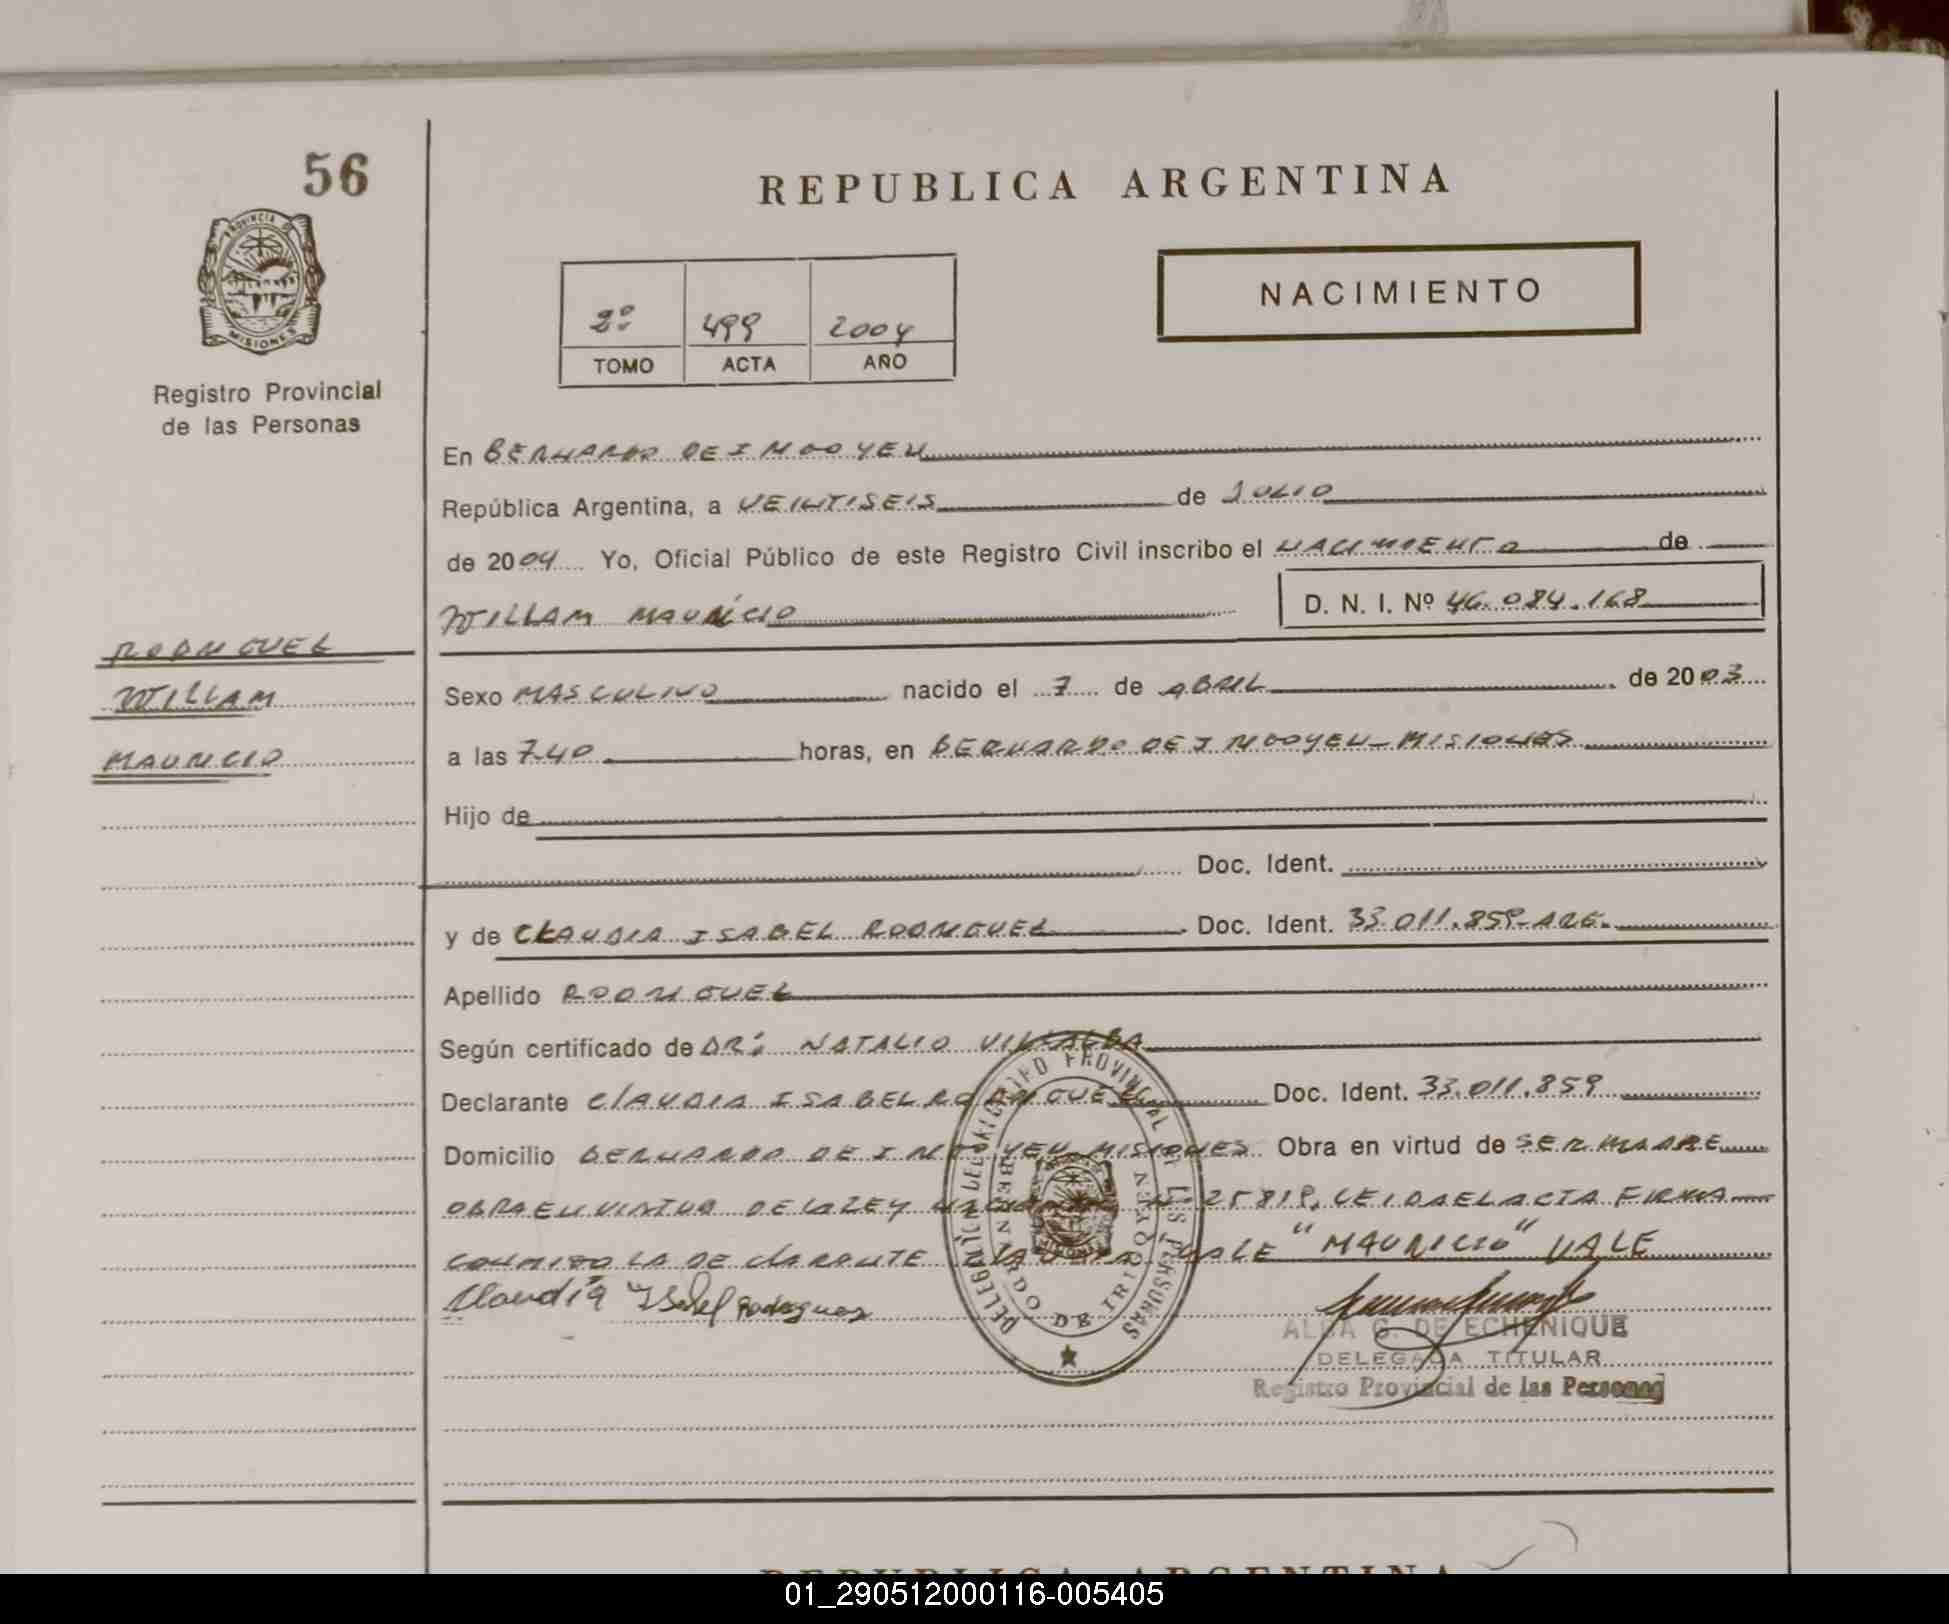 56
REPUBLICA ARGENTINA
PROVINCIA DE
MISIONES
Registro Provincial
de las Personas
NACIMIENTO
2º 499 2004
TOMO ACTA AÑO
En BERNARDO DE IRIGOYEN
República Argentina, a VEINTISEIS de JULIO
de 2004 Yo, Oficial Público de este Registro Civil inscribo el NACIMIENTO de
WILLAM MAURICIO D. N. I. Nº 46.084.168
RODRIGUEZ
WILLAM
MAURICIO
Sexo MASCULINO nacido el 7 de ABRIL de 2003
a las 7.40 horas, en BERNARDO DE IRIGOYEN - MISIONES
Hijo de
Doc. Ident.
y de CLAUDIA ISABEL RODRIGUEZ Doc. Ident. 33.011.859-ARG.
Apellido RODRIGUEZ
Según certificado de DR: NATALIO VILLALBA
Declarante CLAUDIA ISABEL RODRIGUEZ Doc. Ident. 33.011.859
Domicilio BERNARDO DE IRIGOYEN-MISIONES Obra en virtud de SER MADRE
OBRA EN VIRTUD DE LA LEY Nº 25819, LEIDA EL ACTA FIRMA
CONMIGO LA DECLARANTE VALE "MAURICIO" VALE
Claudia Isabel Rodriguez
DELEGACION DEL REGISTRO PROVINCIAL DE LAS PERSONAS
BERNARDO DE IRIGOYEN
ALBA G. DE ECHENIQUE
DELEGADA TITULAR
Registro Provincial de las Personas
REPUBLICA ARGENTINA
01_290512000116-005405